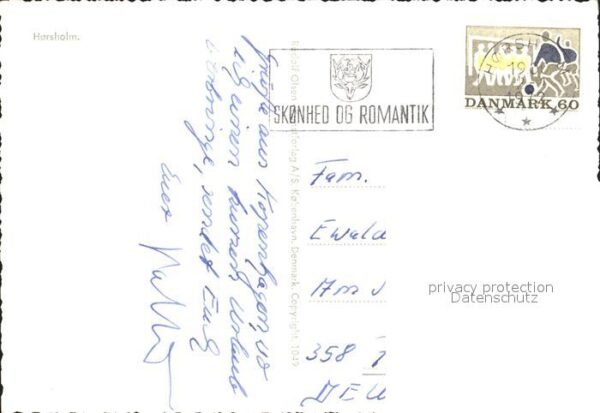 Hørsholm.
SKØNHED OG ROMANTIK
DANMARK 60
Grüße aus Kopenhagen, wo
wir einen kurzen Urlaub
sendet Euch
Euer
Rudolf Olsens Kunstforlag A/S. København. Denmark. Copyright. 1049
Fam.
Ewald
Am
privacy protection
Datenschutz
358
DEU